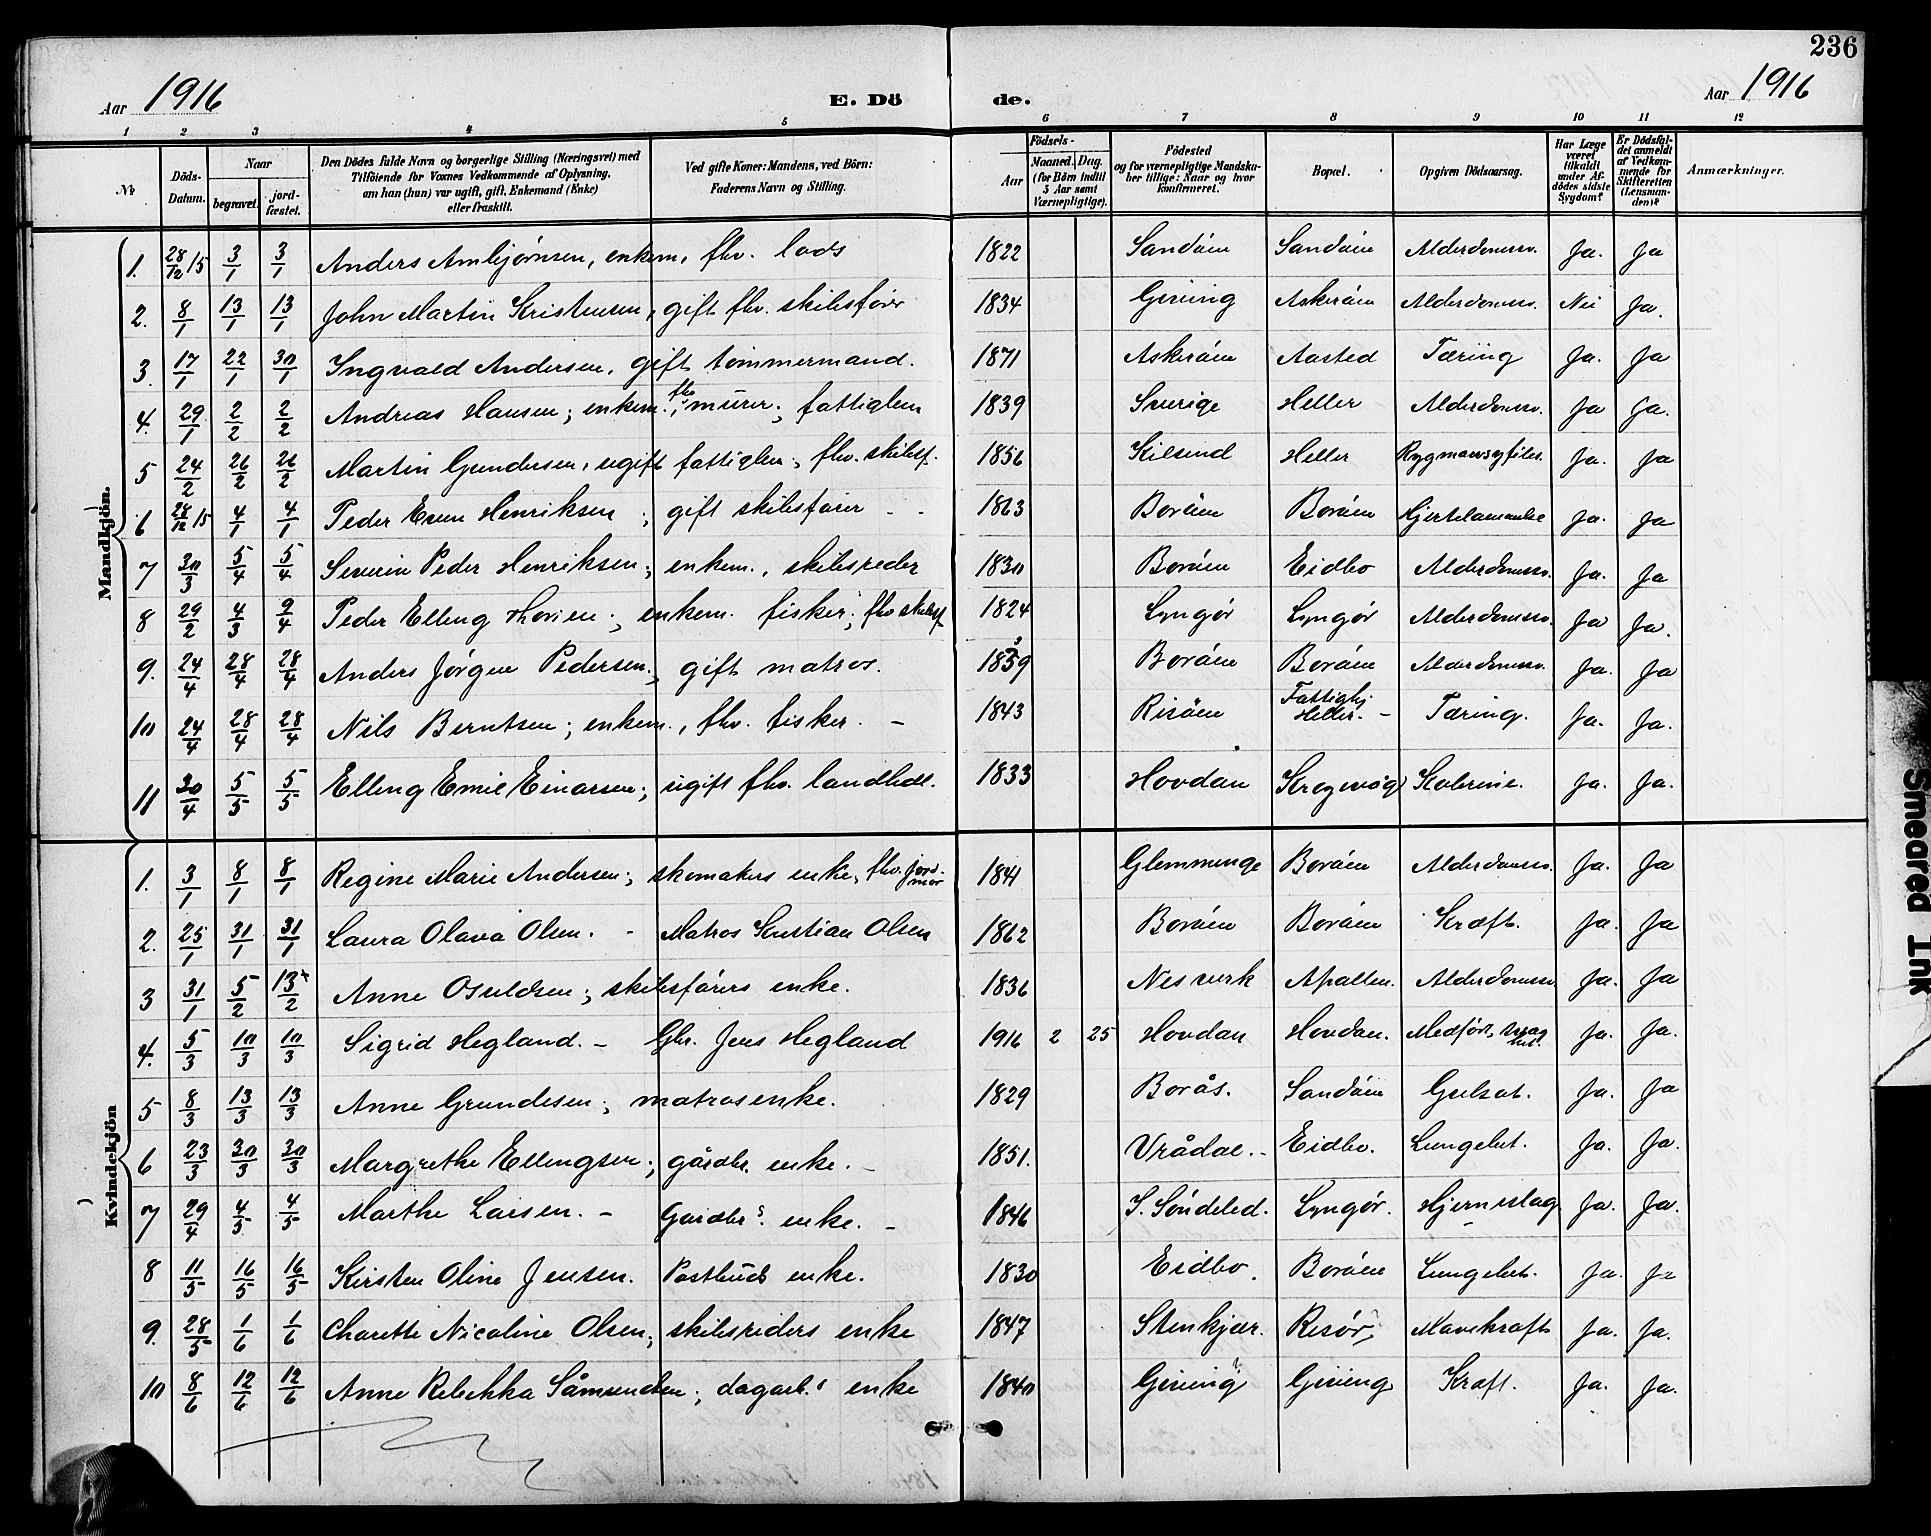 236
Aar 1916 E. Dö de. Aar 1916
1 2 3 4 5 6 7 8 9 10 11 12
Nr. Döds-Datum. Naar begravet. jord-fæstet. Den Dödes fulde Navn og borgerlige Stilling (Næringsvei) med Tilföiende for Voxnes Vedkommende af Oplysning, om han (hun) var ugift, gift, Enkemand (Enke) eller fraskilt. Ved gifte Koner: Mandens, ved Börn: Faderens Navn og Stilling. Födsels- Aar Maaned. Dag. (for Börn indtil 5 Aar samt Værnepligtige). Födested og for værnepligtige Mandskaber tillige: Naar og hvor konfirmeret. Bopæl. Opgiven Dödsaarsag. Har Læge været tilkaldt under Afdödes sidste Sygdom? Er Dödsfaldet anmeldt af Vedkommende for Skifteretten (Lensmanden)? Anmærkninger.
Mandkjön.
1. 28/12 15 3/1 3/1 Anders Ambjørnsen, enkem, fhv. lods 1822 Sandøen Sandøen Alderdomssv. Ja. Ja
2. 8/1 13/1 13/1 John Martin Kristensen, gift fhv. skibsfører 1834 Gjeving Askerøen Alderdomssv. Nei Ja.
3. 17/1 22/1 30/1 Ingvald Andersen, gift tømmermand. 1871 Askerøen Aasted Tæring Ja. Ja
4. 29/1 2/2 2/2 Andreas Hansen; enkem. fhv. murer; fattiglem 1839 Sverige Heller Alderdomssv. Ja Ja.
5 24/2 26/2 26/2 Martin Gundersen, ugift fattiglem; fhv. skibsf. 1856 Kilsund Heller Rygmarvsyfiles. Ja. Ja
6 28/12 15 4/1 4/1 Peder Even Henriksen; gift skibsfører - - 1863 Borøen Borøen Hjertelammelse Ja. Ja
7 30/3 5/4 5/4 Severin Peder Henriksen; enkem., skibsreder 1830 Borøen Eidbo Alderdomssv. Ja. Ja
8 29/2 4/3 9/4 Peder Elling Thorsen; enkem. fisker; fhv skibsf. 1824 Lyngør Lyngør Alderdomssv. Ja Ja.
9. 24/4 28/4 28/4 Anders Jørgen Pedersen; gift matros. 1839 Borøen Borøen Alderdomssv. Ja. Ja
10 24/4 28/4 28/4 Nils Berntsen; enkem., fhv. fisker. - 1843 Risøen Fattighj Heller. - Tæring. Ja. Ja.
11 30/4 5/5 5/5 Elling Emil Einarsen; ugift fhv. landhdl. 1833 Hovdan Krogevåg Kolerine. Ja. Ja.
Kvindekjön
1. 3/1 8/1 8/1 Regine Marie Andersen; skomakers enke, fhv. Jord-mor 1841 Glemmunge Borøen Alderdomssv. Ja. Ja
2. 25/1 31/1 31/1 Laura Olava Olsen. - Matros Kristian Olsen 1862 Borøen Borøen Kræft. Ja. Ja
3 31/1 5/2 13/2 Anne Osuldsen; skibsførers enke. 1836 Nesverk Apallen. Alderdomssv Ja. Ja
4. 5/3 10/3 10/3 Sigrid Hegland. - Gbr. Jens Hegland 1916 2 25 Hovdan Hovdan. Medfødt svaghet. Ja. Ja.
5 8/3 13/3 13/3 Anne Grundesen; matrosenke. 1829 Borås. Sandøen Gulsot. Ja. Ja
6 23/3 30/3 30/3 Margrethe Ellingsen; gårdbr. enke. - 1851. Vrådal. - Eidbo. Lungebet. Ja. Ja.
7 29/4 4/5 4/5 Marthe Larsen. - Gaardbrs. enke. - 1846 S. Søndeled. Lyngør. Hjerneslag Ja. Ja.
8 11/5 16/5 16/5 Kirsten Oline Jensen. Postbuds enke. 1830 Eidbo. Borøen Lungebet. Ja. Ja
9. 28/5 1/6 1/6 Charette Nicoline Olsen; skibsreders enke 1847 Stenkjær. Risør; Mavekræft Ja. Ja.
10 8/6 12/6 12/6 Anne Rebekka Såmundsen; dagarb.' enke 1840 Gjeving? Gjeving Kræft. Ja. Ja.
Smeared Ink